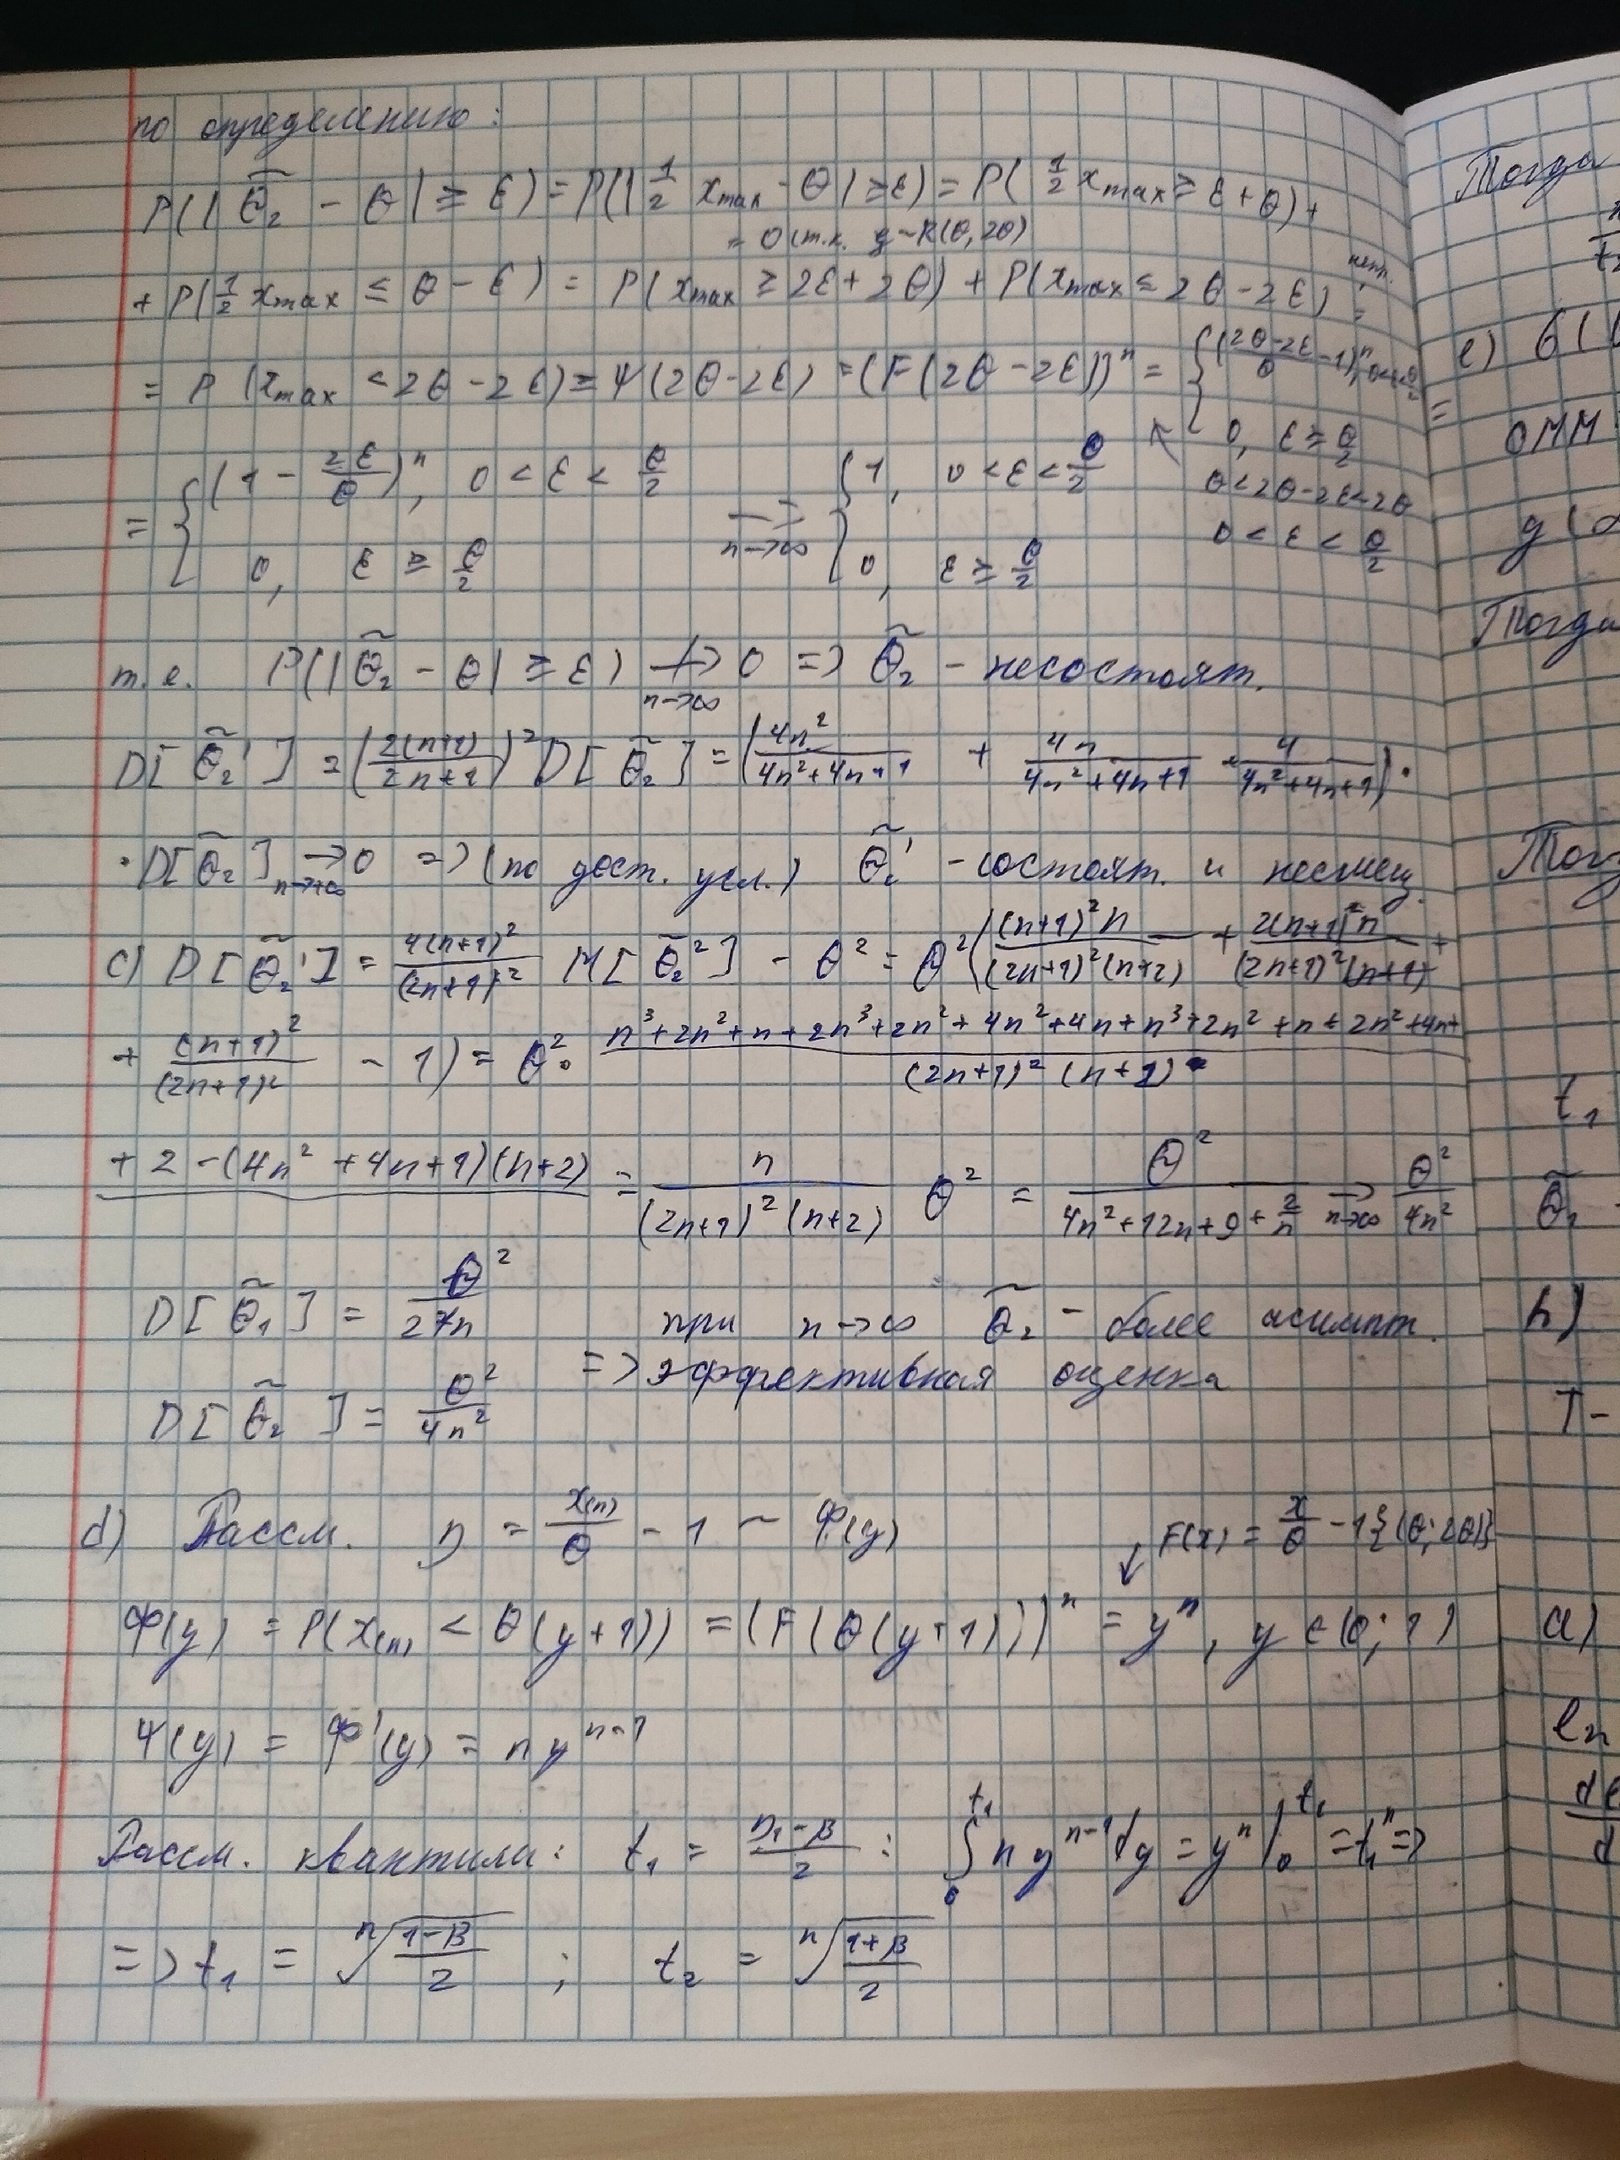 по определению:
P(|θ̃₂ - θ| ≥ ε) = P(|1/2 x_max - θ| ≥ ε) = P(1/2 x_max ≥ ε + θ) +
= 0 (т.к. ~ R(θ, 2θ)
+ P(1/2 x_max ≤ θ - ε) = P(x_max ≥ 2ε + 2θ) + P(x_max ≤ 2θ - 2ε) =
= P(x_max < 2θ - 2ε) = Ψ(2θ - 2ε) = (F(2θ - 2ε))ⁿ = { ((2θ - 2ε)/θ - 1)ⁿ,
0, ε ≥ θ/2
= { (1 - 2ε/θ)ⁿ, 0 < ε < θ/2 → n→∞ { 1, 0 < ε < θ/2
θ < 2θ - 2ε < 2θ
0 < ε < θ/2
0, ε ≥ θ/2 0, ε ≥ θ/2
т.е. P(|θ̃₂ - θ| ≥ ε) ↛ n→∞ 0 => θ̃₂ - несостоят.
D[θ̃₂'] = (2(n+1)/(2n+1))² D[θ̃₂] = (4n²/(4n²+4n+1) + 4n/(4n²+4n+1) + 4/(4n²+4n+1)) ·
· D[θ̃₂] → n→∞ 0 => (по дост. усл.) θ̃₂' - состоят. и несмещ.
c) D[θ̃₂'] = 4(n+1)²/(2n+1)² M[θ̃₂²] - θ² = θ²((n+1)²n/((2n+1)²(n+2)) + 2(n+1)²n/((2n+1)²(n+1)) +
+ (n+1)²/(2n+1)² - 1) = θ² · (n³+2n²+n+2n³+2n²+4n²+4n+n³+2n²+n+2n²+4n+)/((2n+1)²(n+2))
+ 2 - (4n²+4n+1)(n+2) = n/((2n+1)²(n+2)) θ² = θ²/(4n²+12n+9+2/n) → n→∞ θ²/4n²
D[θ̃₁] = θ²/27n при n→∞ θ̃₂ - более асимпт.
=> эффективная оценка
D[θ̃₂] = θ²/4n²
d) Рассм. η = x₍ₙ₎/θ - 1 ~ Φ(y)
F(x) = x/θ - 1 {(θ; 2θ)}
Φ(y) = P(x₍ₙ₎ < θ(y+1)) = (F(θ(y+1)))ⁿ = yⁿ, y ∈ (0; 1)
Ψ(y) = Φ'(y) = n yⁿ⁻¹
Рассм. квантили: t₁ = n₁-β/2 : ∫₀^t₁ n yⁿ⁻¹ dy = yⁿ |₀^t₁ = t₁ⁿ =>
=> t₁ = ⁿ√((1-β)/2) ; t₂ = ⁿ√((1+β)/2)
Тогда
e)
ОММ
Тогда
t₁
θ̃₁
h)
T -
a)
ln